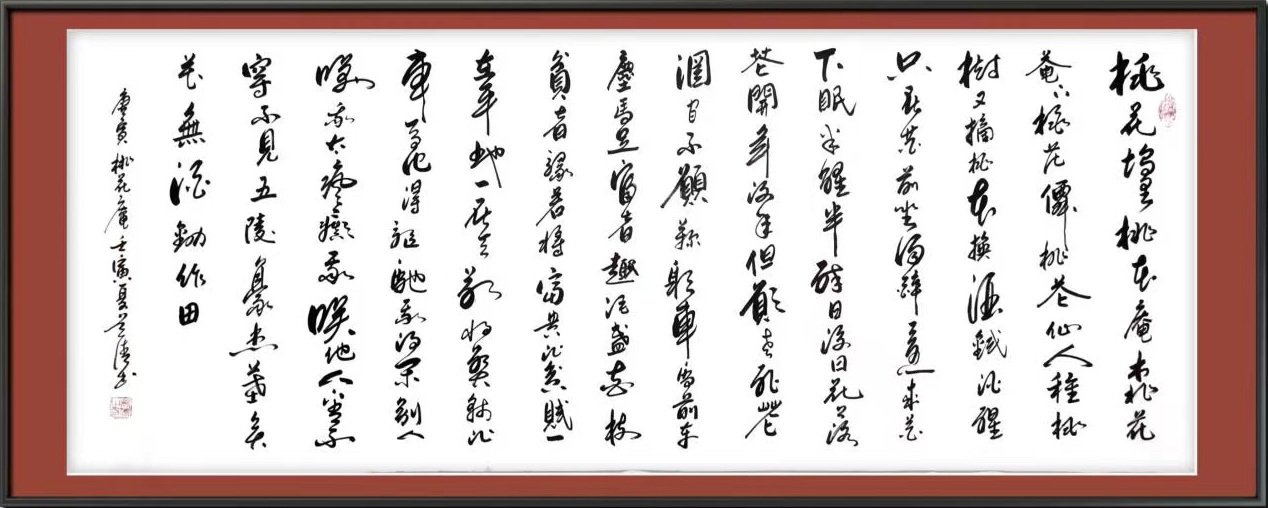 桃花塢里桃花庵桃花
庵下桃花仙桃花仙人種桃
樹又摘桃花換酒錢酒醒
只在花前坐酒醉還來花
下眠半醒半醉日復日花落
花開年復年但願老死花
酒間不願鞠躬車馬前車
塵馬足富者趣酒盞花枝
貧者緣若將富貴比貧賤一
在平地一在天若將貧賤比
車馬他得驅馳我得閑別人
笑我太瘋癲我笑他人看不
穿不見五陵豪傑墓無
花無酒鋤作田
唐寅桃花庵壬寅夏清書